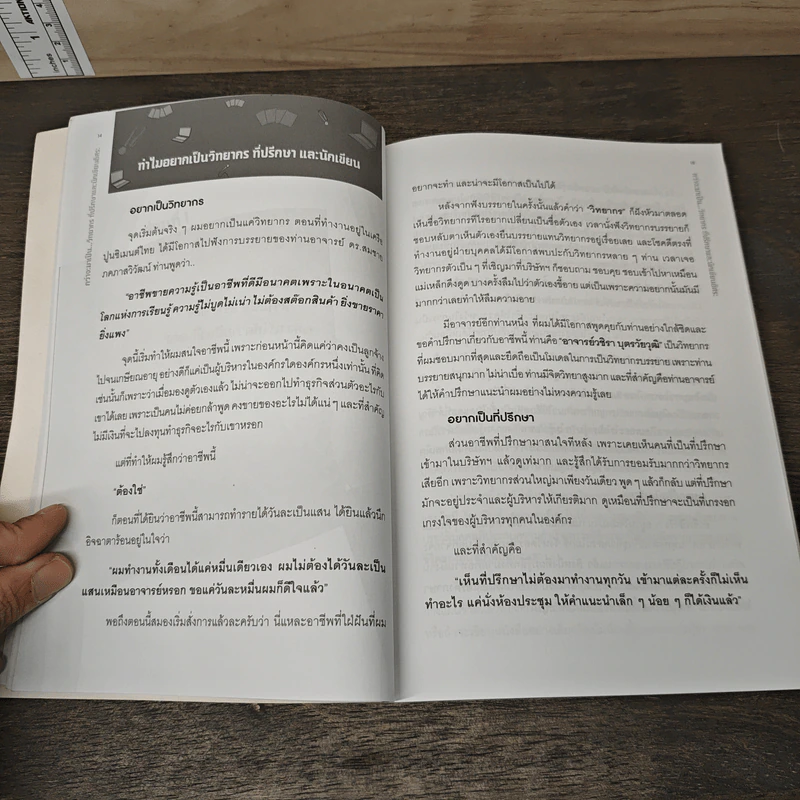 ทำไมอยากเป็นวิทยากร ที่ปรึกษา และนักเขียน
อยากเป็นวิทยากร
จุดเริ่มต้นจริง ๆ ผมอยากเป็นแค่วิทยากร ตอนที่ทำงานอยู่ในเครือ
ปูนซิเมนต์ไทย ได้มีโอกาสไปฟังการบรรยายของท่านอาจารย์ ดร.สมชาย
ภคภาสวิวัฒน์ ท่านพูดว่า..
"อาชีพขายความรู้เป็นอาชีพที่ดีมีอนาคตเพราะในอนาคตเป็น
โลกแห่งการเรียนรู้ ความรู้ไม่บูดไม่เน่า ไม่ต้องสต๊อกสินค้า ยิ่งขายราคา
ยิ่งแพง"
จุดนี้เริ่มทำให้ผมสนใจอาชีพนี้ เพราะก่อนหน้านี้คิดแค่ว่าคงเป็นลูกจ้าง
ไปจนเกษียณอายุ อย่างดีก็แค่เป็นผู้บริหารในองค์กรใดองค์กรหนึ่งเท่านั้น ที่คิด
เช่นนั้นก็เพราะว่าเมื่อมองดูตัวเองแล้ว ไม่น่าจะออกไปทำธุรกิจส่วนตัวอะไรกับ
เขาได้เลย เพราะเป็นคนไม่ค่อยกล้าพูด คงขายของอะไรไม่ได้แน่ ๆ และที่สำคัญ
ไม่มีเงินที่จะไปลงทุนทำธุรกิจอะไรกับเขาหรอก
แต่ที่ทำให้ผมรู้สึกว่าอาชีพนี้
"ต้องใช่"
ก็ตอนที่ได้ยินว่าอาชีพนี้สามารถทำรายได้วันละเป็นแสน ได้ยินแล้วนึก
อิจฉาตาร้อนอยู่ในใจว่า
"ผมทำงานทั้งเดือนได้แค่หมื่นเดียวเอง ผมไม่ต้องได้วันละเป็น
แสนเหมือนอาจารย์หรอก ขอแค่วันละหมื่นผมก็ดีใจแล้ว"
พอถึงตอนนี้สมองเริ่มสั่งการแล้วละครับว่า นี่แหละอาชีพที่ใฝ่ฝันที่ผม
อยากจะทำ และน่าจะมีโอกาสเป็นไปได้
หลังจากฟังบรรยายในครั้งนั้นแล้วคำว่า "วิทยากร" ก็ฝังหัวมาตลอด
เห็นชื่อวิทยากรที่ไรอยากเปลี่ยนเป็นชื่อตัวเอง เวลานั่งฟังวิทยากรบรรยายก็
ชอบหลับตาเห็นตัวเองยืนบรรยายแทนวิทยากรอยู่เรื่อยเลย และโชคดีตรงที่
ทำงานอยู่ฝ่ายบุคคลได้มีโอกาสพบปะกับวิทยากรหลาย ๆ ท่าน เวลาเจอ
วิทยากรตัวเป็น ๆ ที่เชิญมาที่บริษัทฯ ก็ชอบถาม ชอบคุย ชอบเข้าไปหาเหมือน
แม่เหล็กดึงดูด บางครั้งลืมไปว่าตัวเองขี้อาย แต่เป็นเพราะความอยากนั้นมันมี
มากกว่าเลยทำให้ลืมความอาย
มีอาจารย์อีกท่านหนึ่ง ที่ผมได้มีโอกาสพูดคุยกับท่านอย่างใกล้ชิดและ
ขอคำปรึกษาเกี่ยวกับอาชีพนี้ ท่านคือ "อาจารย์วชิรา บุตรวัยวุฒิ" เป็นวิทยากร
ที่ผมชอบมากที่สุดและยึดถือเป็นโมเดลในการเป็นวิทยากรบรรยาย เพราะท่าน
บรรยายสนุกมาก ไม่น่าเบื่อ ท่านมีจิตวิทยาสูงมาก และที่สำคัญคือท่านอาจารย์
ได้ให้คำปรึกษาแนะนำผมอย่างไม่หวงความรู้เลย
อยากเป็นที่ปรึกษา
ส่วนอาชีพที่ปรึกษามาสนใจทีหลัง เพราะเคยเห็นคนที่เป็นที่ปรึกษา
เข้ามาในบริษัทฯ แล้วดูเท่มาก และรู้สึกได้รับการยอมรับมากกว่าวิทยากร
เสียอีก เพราะวิทยากรส่วนใหญ่มาเพียงวันเดียว พูด ๆ แล้วก็กลับ แต่ที่ปรึกษา
มักจะอยู่ประจำและผู้บริหารให้เกียรติมาก ดูเหมือนที่ปรึกษาจะเป็นที่เกรงอก
เกรงใจของผู้บริหารทุกคนในองค์กร
และที่สำคัญคือ
"เห็นที่ปรึกษาไม่ต้องมาทำงานทุกวัน เข้ามาแต่ละครั้งก็ไม่เห็น
ทำอะไร แค่นั่งห้องประชุม ให้คำแนะนำเล็ก ๆ น้อย ๆ ก็ได้เงินแล้ว"